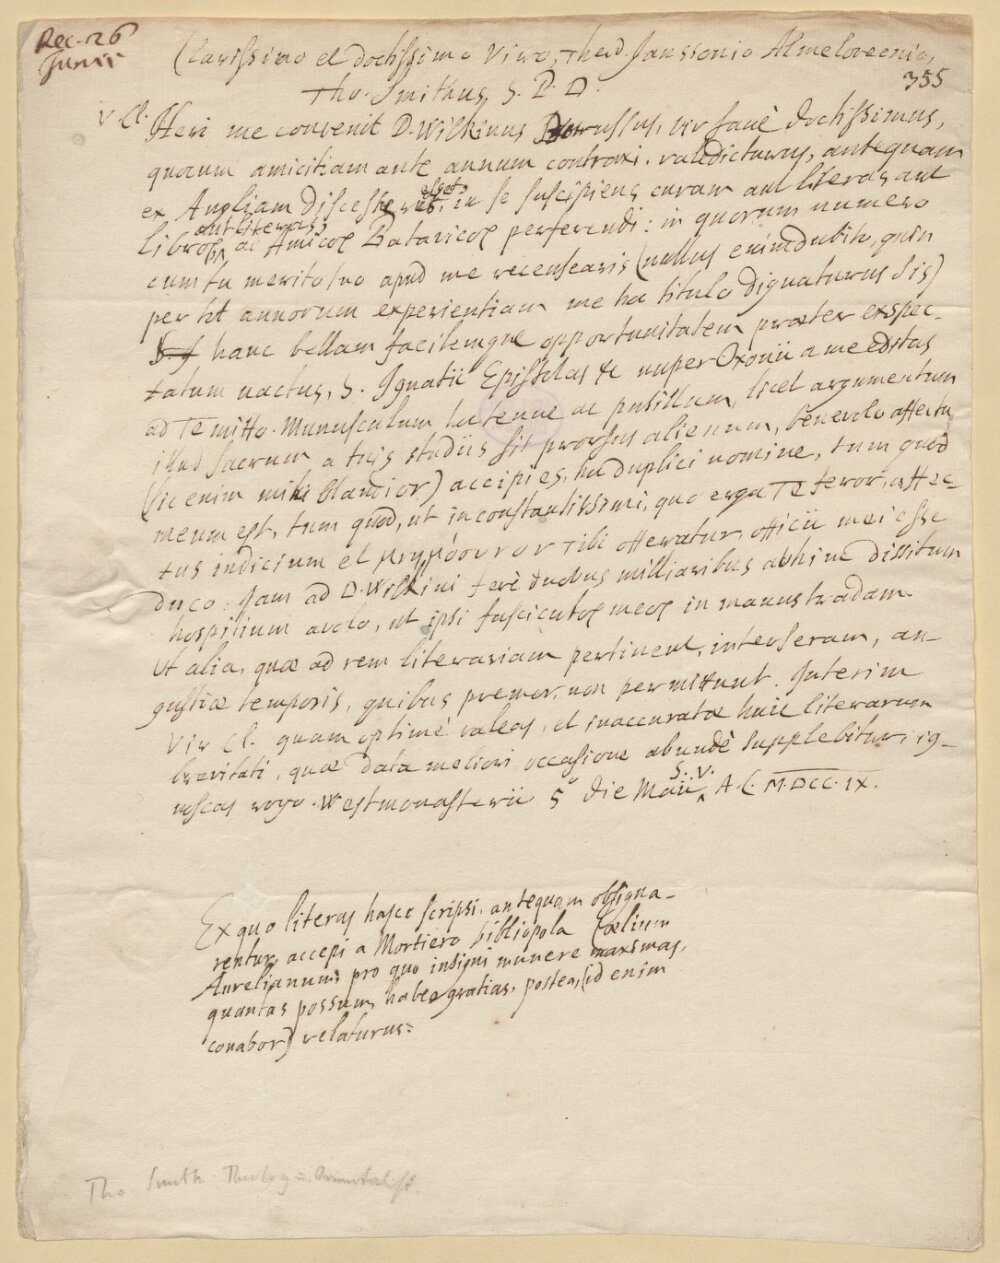 Rec. 26
Junii
355
Clarissimo et doctissimo Viro, Theod. Janssonio Almeloveenio,
Tho. Smithus, S. P. D.
V. Cl. Heri me convenit D. Wilkinus Borussus, vir sanè doctissimus,
quocum amicitiam ante annum contraxi, valedicturus, antequam
ex Angliam discess esset, in se suscipiens curam aut literas aut
aut literas
libros ad Amicos Batavicos perferendi: in quorum numero
cum tu merito tuo apud me recensearis (nullus enim dubito, quin
per tot annorum experientiam me hoc titulo dignaturus sis)
hanc bellam facilemque opportunitatem præter exspec-
tatum nactus, S. Ignatii Epistolas &c nuper Oxonii a me editas
ad Te mitto. Munusculum hoc tenue ac pusillum, licet argumentum
illud sacrum a tuis studiis sit prorsus alienum, benevolo affectu
(sic enim mihi blandior) accipies, hoc duplici nomine, tum quod
meum est, tum quod, ut inconstantissimi, quo erga Te feror, affec-
tus indicium et μνημόσυνον tibi offeratur, officii mei esse
duco. Jam ad D. Wilkini ferè duobus milliaribus abhinc dissitum
hospitium avolo, ut ipsi fasciculos meos in manus tradam.
Ut alia, quæ ad rem literariam pertinent, interseram, an-
gustiæ temporis, quibus premor, non permittunt. Interim
Vir Cl. quam optimè valeas, et inaccuratæ huic literarum
brevitati, quæ data meliori occasione abundè supplebitur, ig-
noscas rogo. Westmonasterii 5° die Maii S. V. A. C. MDCCIX.
Ex quo literas hasce scripsi, antequam obsigna-
rentur, accepi a Mortiero bibliopola Cælium
Aurelianum: pro quo insigni munere maximas,
quantas possum, habeo gratias, postea, (id enim
conabor) relaturus:
Tho Smith Theolog u. Orientalist.